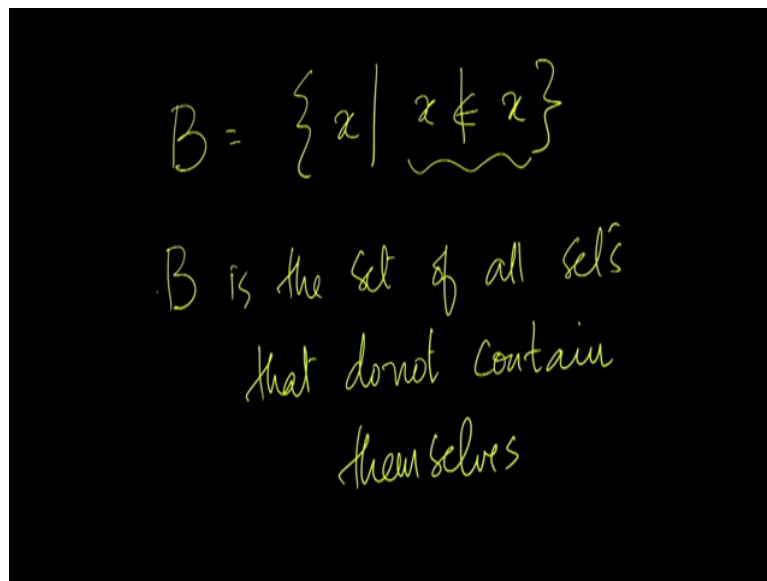 B = {x | x ∉ x}
B is the set of all sets
that donot contain
themselves